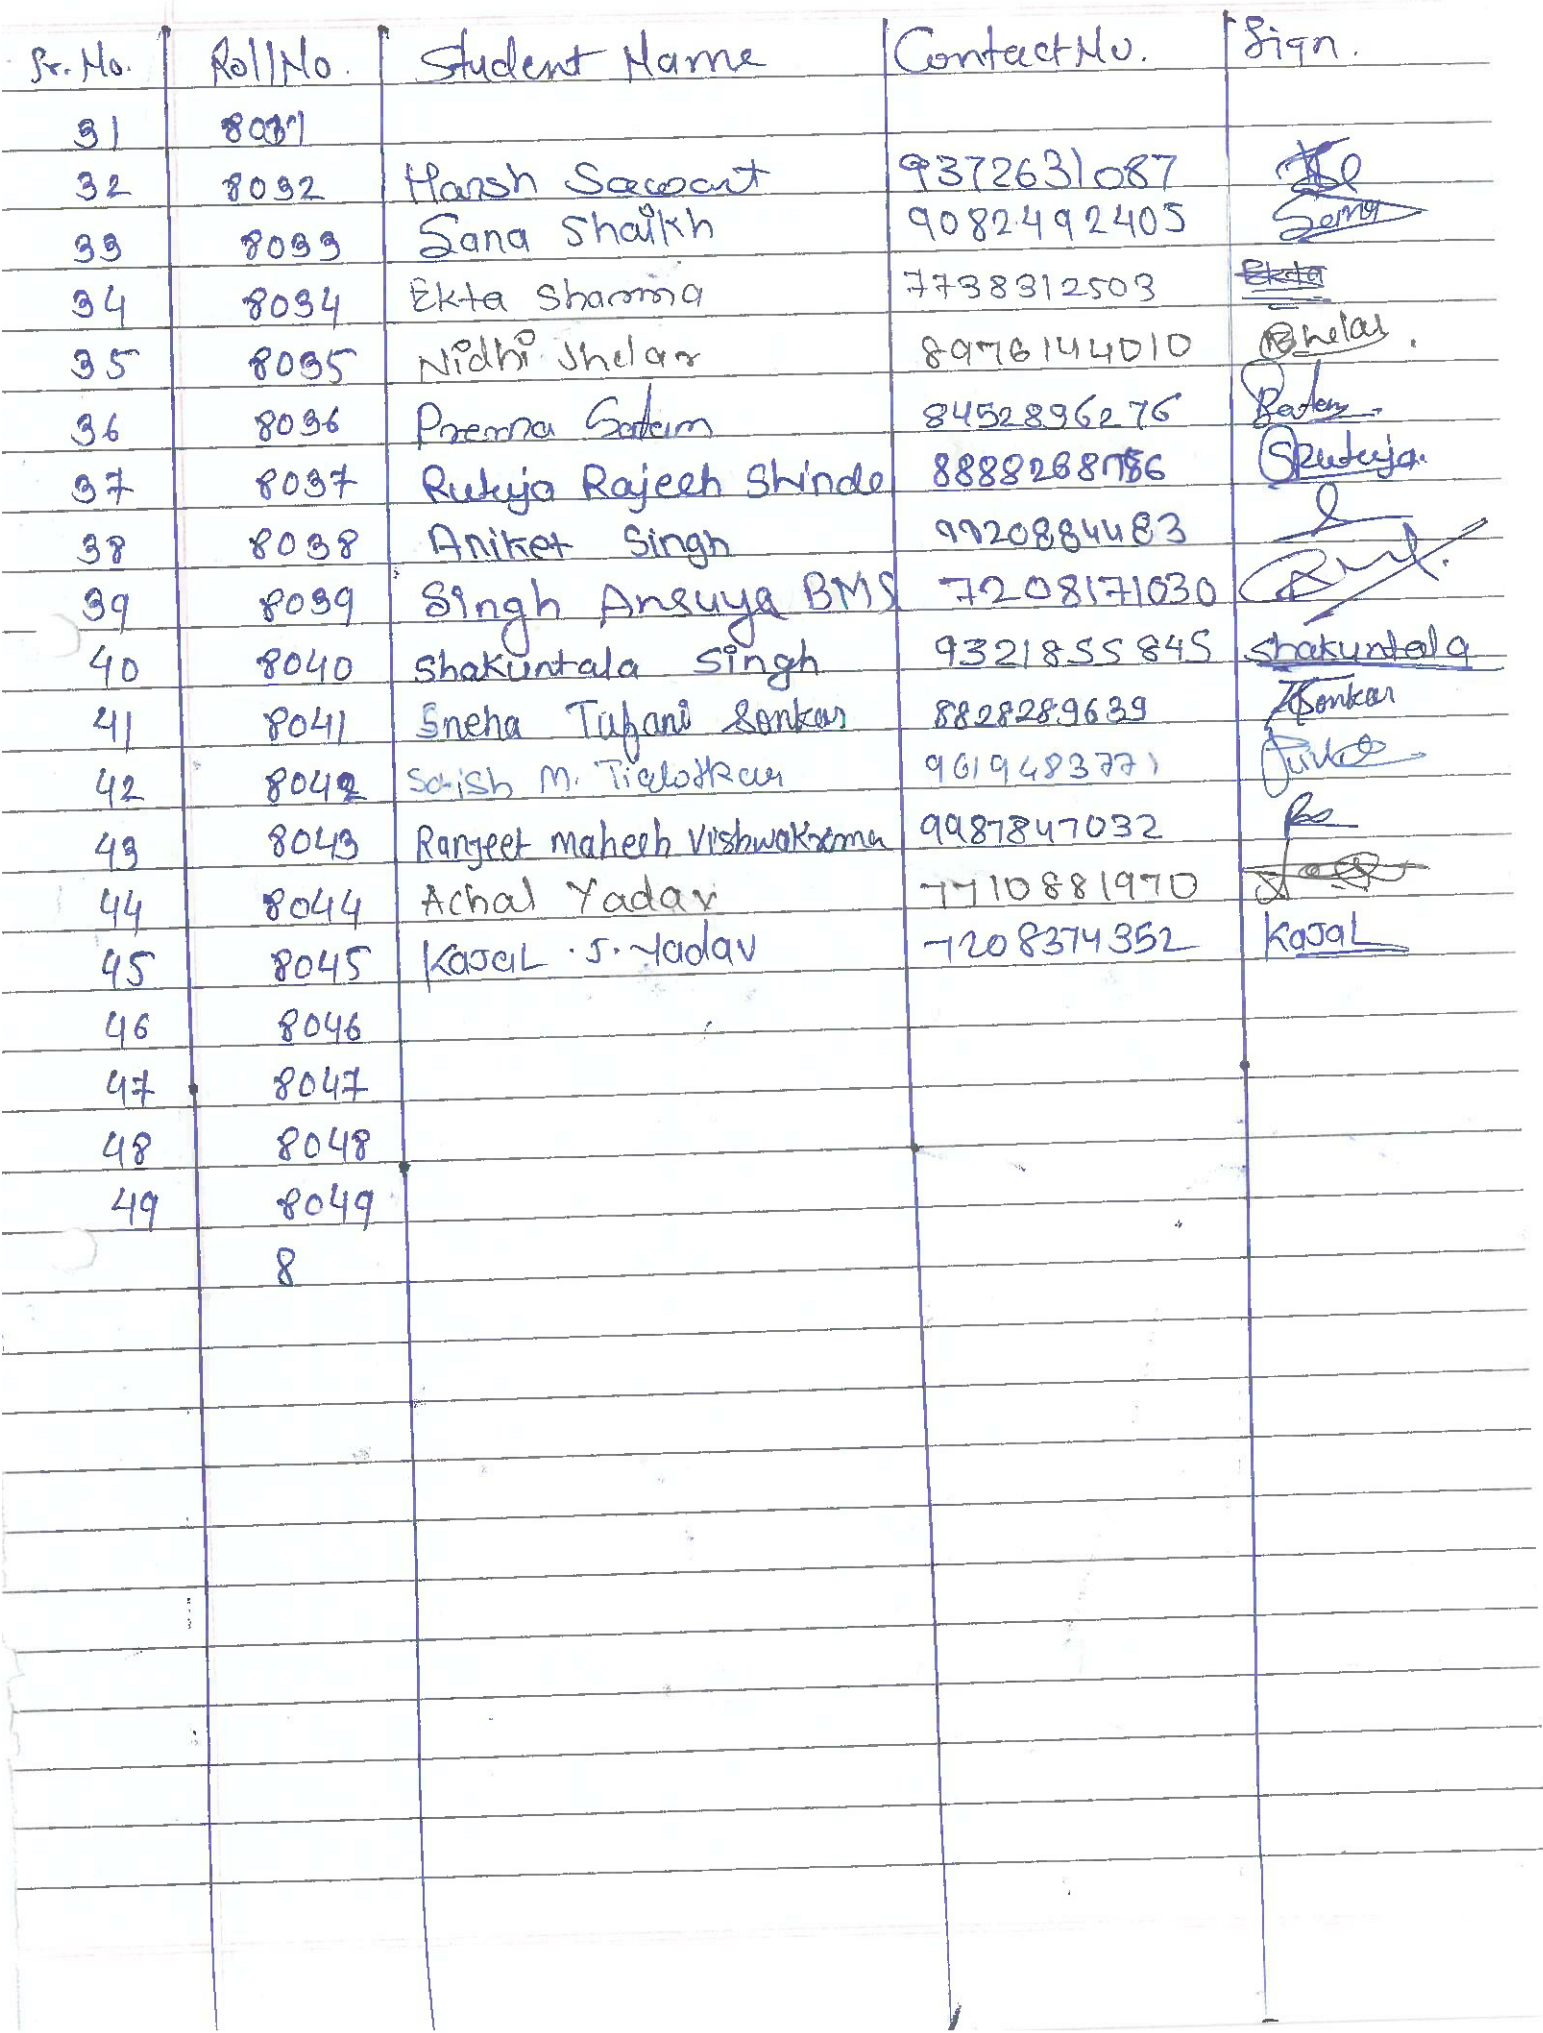 Sr. No. Roll No. Student Name Contact No. Sign.
31 8031
32 8032 Harsh Sawant 9372631087
33 8033 Sana Shaikh 9082492405 Sana
34 8034 Ekta Sharma 7738312503 Ekta
35 8035 Nidhi Shelar 8976144010 Shelar.
36 8036 Prerna Satam 8452896276
37 8037 Rutuja Rajesh Shinde 8888268786 SRutuja.
38 8038 Aniket Singh 9920884483
39 8039 Singh Ansuya BMS 7208171030
40 8040 Shakuntala Singh 9321855845 Shakuntala
41 8041 Sneha Tufani Sonkar 8828289639 Sonkar
42 8042 Satish M. 9619483771
43 8043 Ranjeet Mahesh Vishwakrma 9987847032
44 8044 Achal Yadav 7710881970
45 8045 KaJaL .S. Yadav 7208374352 KaJaL
46 8046
47 8047
48 8048
49 8049
8